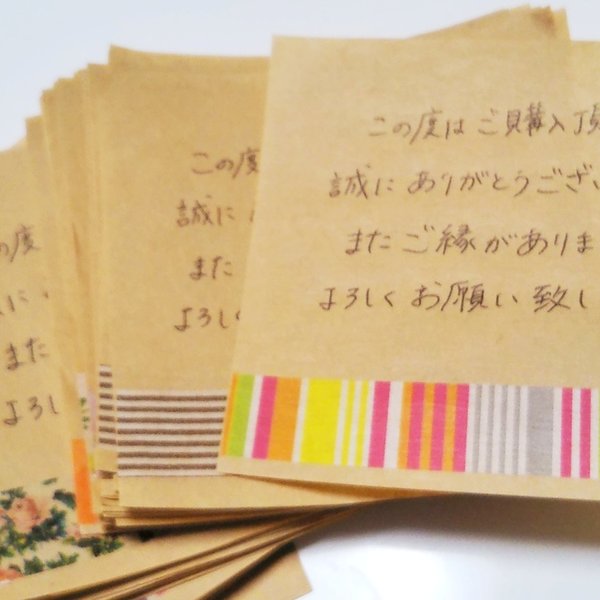 この度はご購入頂
誠にありがとうござい
またご縁がありま
よろしくお願い致し
この度
誠に
また
よろし
の度
に
また
よろし